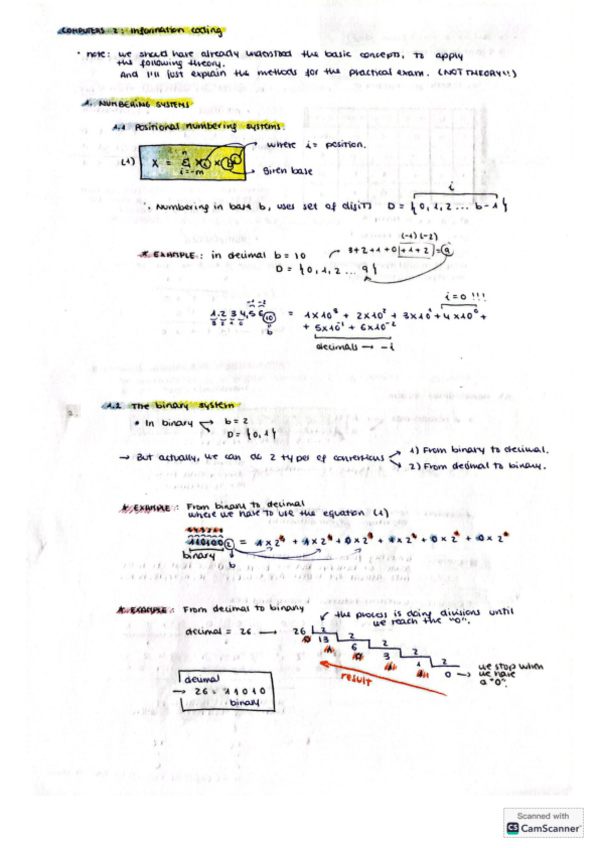 COMPUTERS 2: Information coding
• note: we should have already understood the basic concepts, to apply
the following theory.
And I'll just explain the methods for the practical exam. (NOT THEORY!!)
1. NUMBERING SYSTEMS
1.1 Positional numbering systems.
(1) X = Σ xi × b^i
n
i=-m
where i = position.
Given base
Numbering in base b, uses set of digits D = {0,1,2 ... b-1}
i
* EXAMPLE: in decimal b = 10
D = {0,1,2 ... 9}
(-1)(-2)
3+2+1+0+1+2 = 9
i=0 !!!
1234,56 10 = 1×10³ + 2×10² + 3×10¹ + 4×10⁰ +
+ 5×10⁻¹ + 6×10⁻²
b
decimals → -i
1.2 The binary system
• In binary b = 2
D = {0,1}
→ But actually, we can do 2 types of conversions
1) From binary to decimal.
2) From decimal to binary.
* EXAMPLE: From binary to decimal
where we have to use the equation (1)
110100 2 = 1×2 + 1×2 + 0×2 + 1×2 + 0×2 + 0×2
binary b
* EXAMPLE: From decimal to binary
the process is doing divisions until
we reach the "0".
decimal = 26 → 26 2
0 13 2
1 6 2
0 3 2
1 1 2
1 0
→ we stop when
we have
a "0".
result
decimal
→ 26 = 11010
binary
Scanned with
CS CamScanner